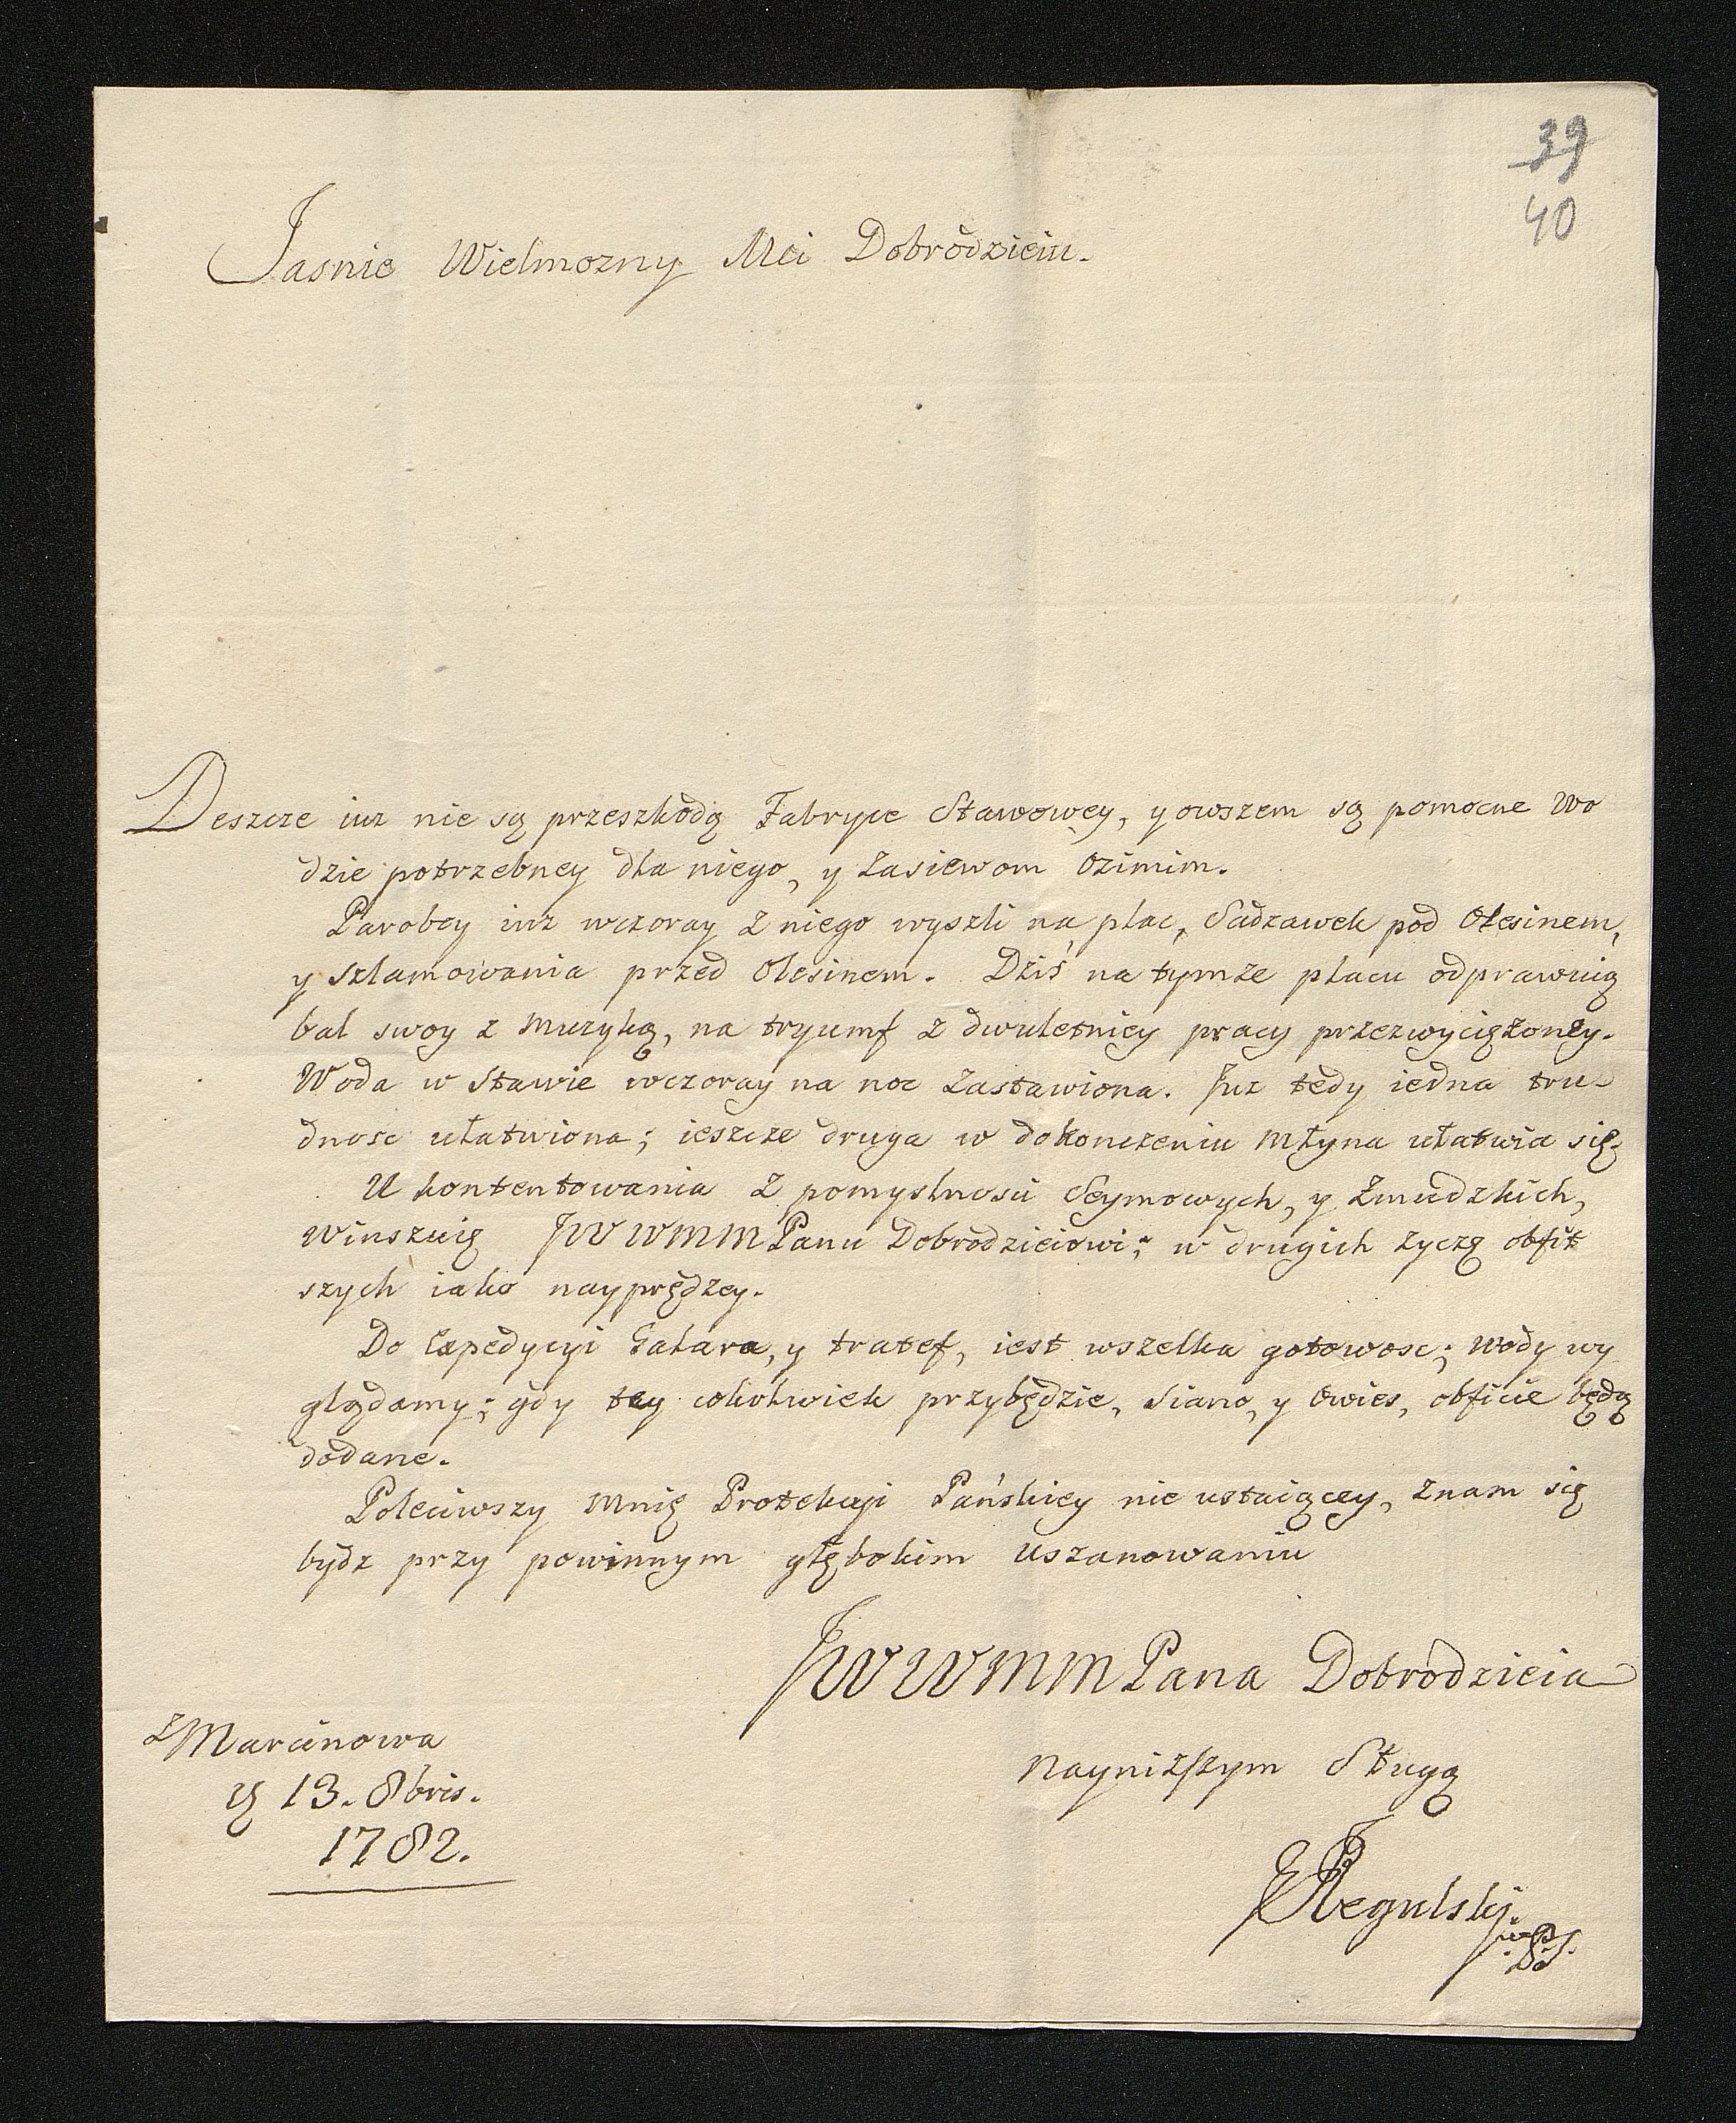 39
40
Jasnie Wielmozny Mci Dobrodzieiu.
Deszcze iuz nie są przeszkodą Fabryce Stawowey, y owszem są pomocne Wo
dzie potrzebney dla niego, y Zasiewom Ozimim.
Parobcy iuz wczoray z niego wyszli na plac, Sadzawek pod Olesinem,
y szlamowania przed Olesinem. Dziś na tymze placu odprawuią
bal swoy z Muzyką, na tryumf z dwuletniey pracy przezwyciężoney.
Woda w Stawie wczoray na noc Zastawiona. Juz tedy iedna tru-
dnosc ułatwiona; ieszcze druga w dokonczeniu Młyna ułatwia się.
Ukontentowania z pomyslnosci Seymowych, y Zmudzkich,
Winszuię JWWMMPanu Dobrodzieiowi; w drugich zyczę obfit
szych iako nayprędzey.
Do Expedycyi Galara, y tratef, iest wszelka gotowosc; Wody wy
glądamy; gdy tey cokolwiek przybędzie, Siano, y Owies, obficie będą
dodane.
Poleciwszy Mnię Protekcyi Pańskiey nie ustaiącey, Znam się
bydz przy powinnym głębokim Uszanowaniu
JWWMMPana Dobrodzieia
Nayniższym Sługą
Regulski
z Marcinowa
13. 8bris.
1782.